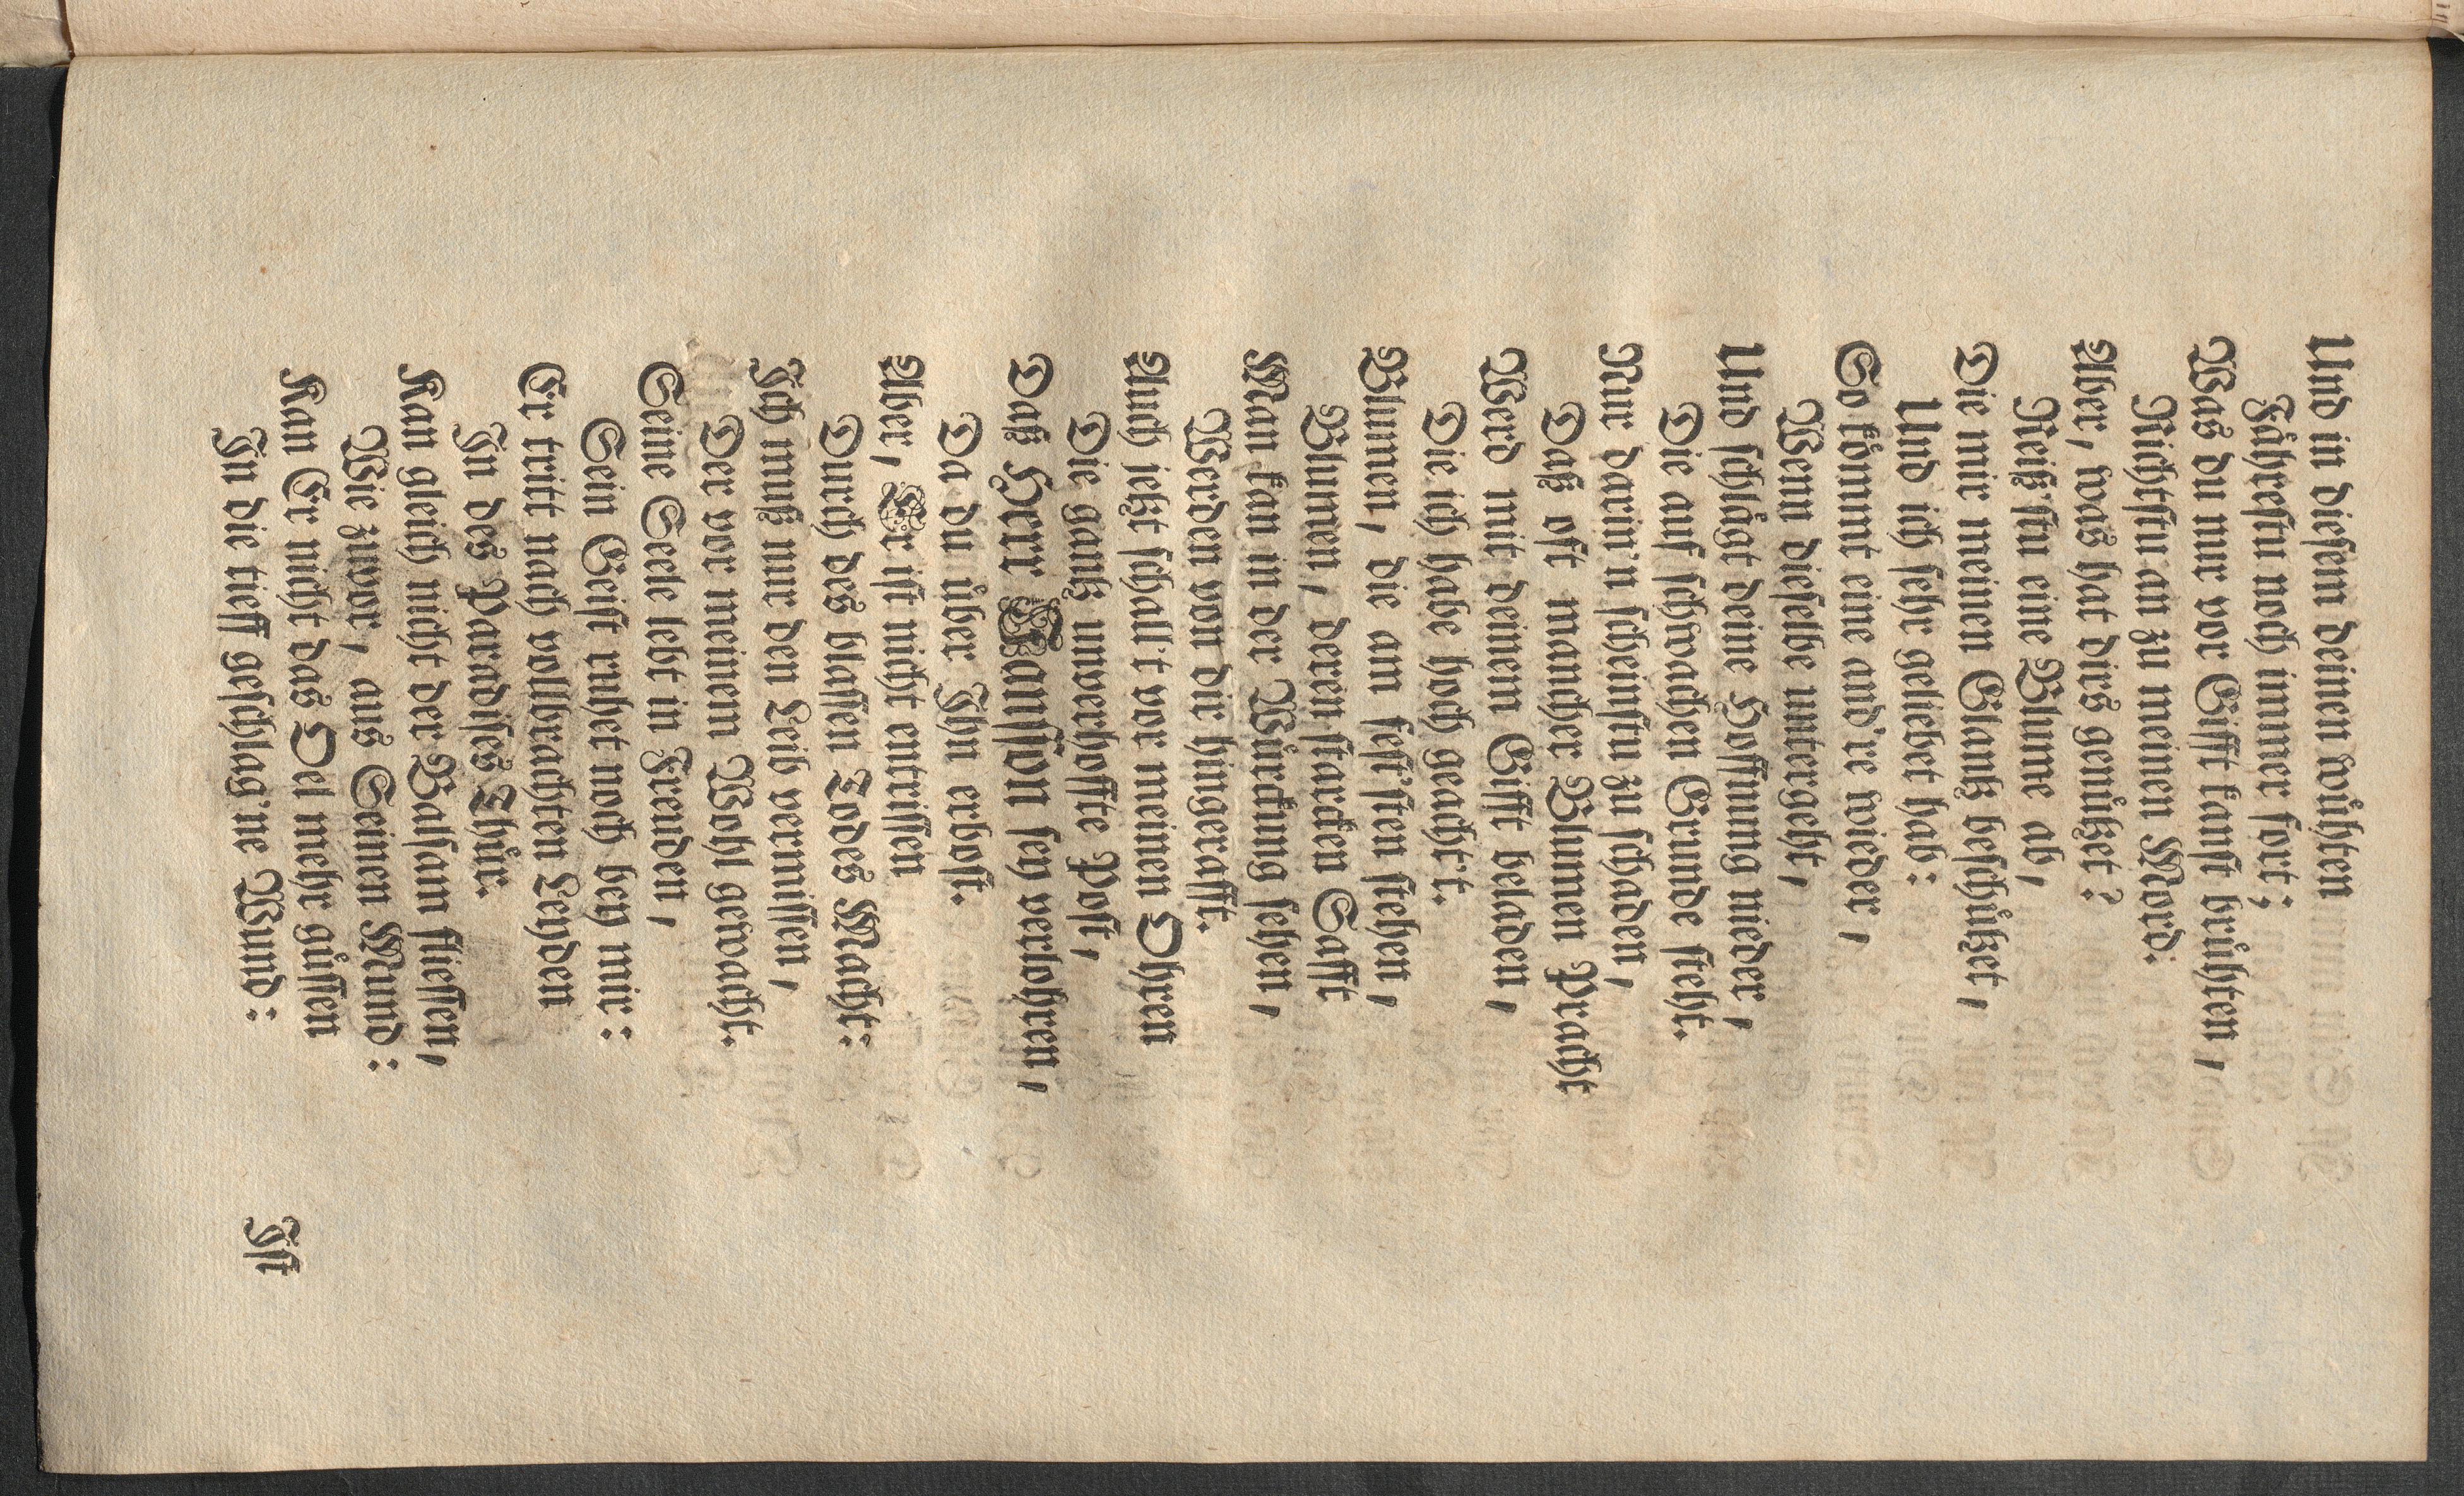 Und in diesem deinen wüthen
Fährestu noch immer fort:
Was du nur vor Gifft kanst brühten,
Richtstu an zu meinen Mord.
Aber, was hat dirs genützet?
Reiß'stu eine Blume ab,
Die mir meinen Glantz beschützet,
Und ich sehr geliebet hab:
So kömmt eine and're wieder,
Wenn dieselbe untergeht,
Und schlägt deine Hoffnung nieder,
Die auf schwachen Grunde steht.
Nur darin'n scheinstu zu schaden,
Daß oft mancher Blumen Pracht
Werd mit deinem Gifft beladen,
Die ich habe hoch geacht't.
Blumen, die am fest'sten stehen,
Blumen, deren starcken Safft
Man kan in der Würckung sehen,
Werden von dir hingerafft.
Auch jetzt schall't vor meinen Ohren
Die gantz unverhoffte Post,
Daß Herr Ranisson sey verlohren,
Da du über Ihn erbost.
Aber, Er ist nicht entrissen
Durch des blassen Todes Macht:
Ich muß nur den Leib vermissen,
Der vor meinem Wohl gewacht.
Seine Seele lebt in Freuden,
Sein Geist ruhet noch bey mir:
Er tritt nach vollbrachten Leyden
In des Paradises Thür.
Kan gleich nicht der Balsam fliessen,
Wie zuvor, aus Seinen Mund:
Kan Er nicht das Oel mehr güssen
In die tieff geschlag'ne Wund:
Ist